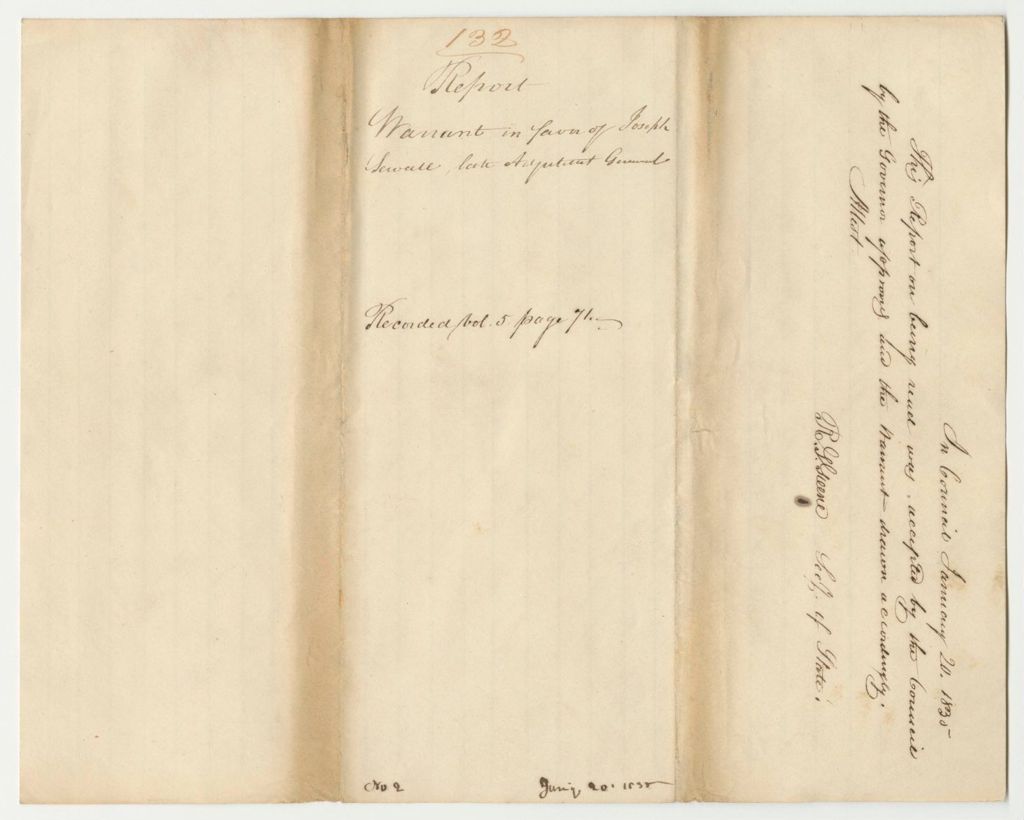 132
Report
Warrant in favor of Joseph
Sewall, late Adjutant General
Recorded Vol. 5. page 71.
No 2
Jan'y 20. 1835
In Council January 20. 1835
This Report on being read was accepted by the Council
by the Governor approved and the Warrant drawn accordingly.
Attest
R. G. Greene Sec'y. of State.